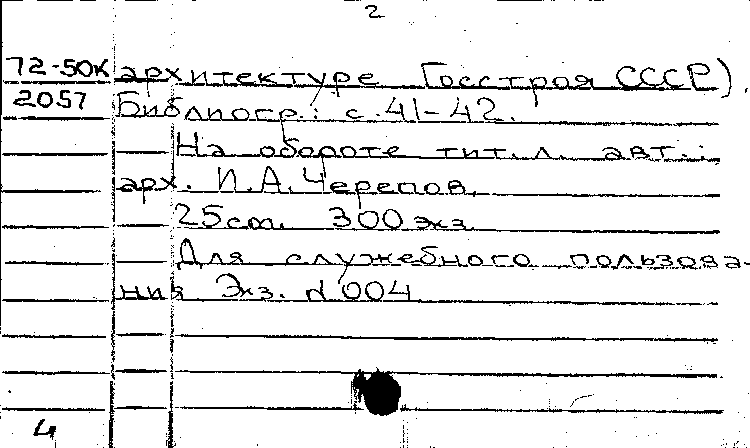 2
72-50К архитектуре Госстроя СССР).
2057 Библиогр.: с.41-42.
На обороте тит.л. авт.:
арх. И.А.Черепов.
25см. 300 экз
Для служебного пользова-
ния Экз. №004
4